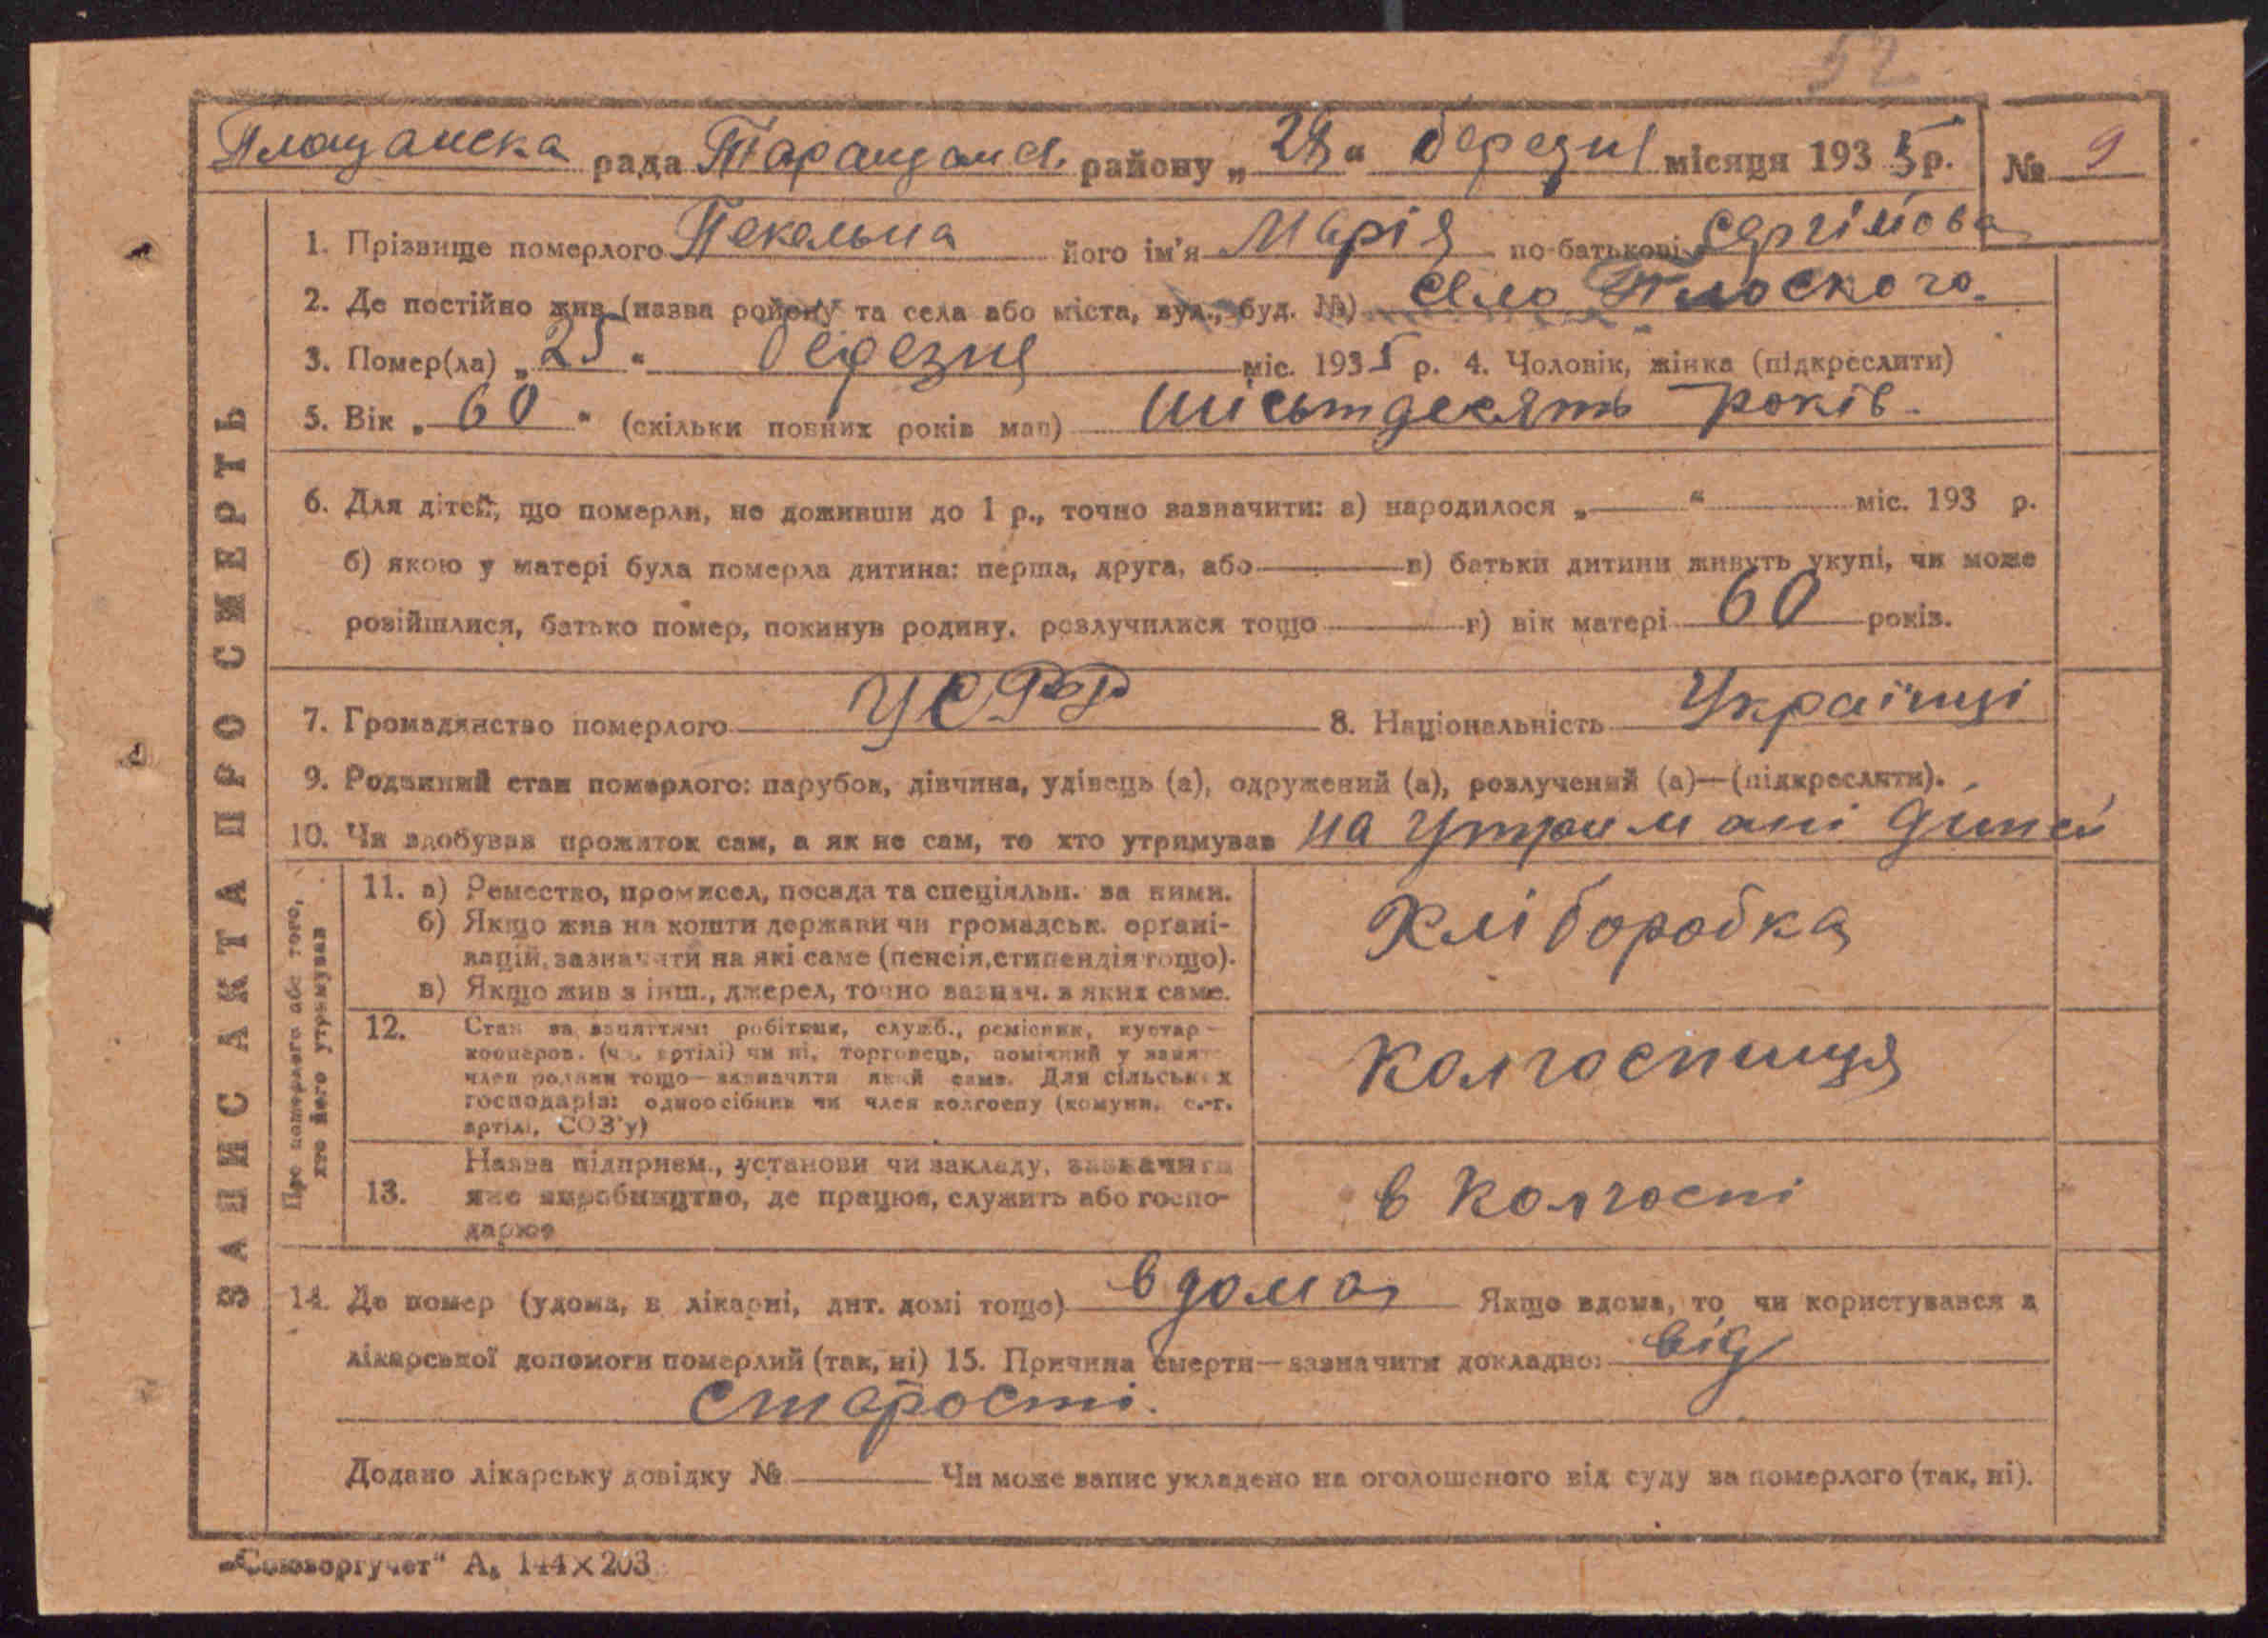 52
Площанска рада Таращанс. району „ 28 “ березня місяця 193 5 р. № 9
1. Прізвище померлого Пекельна його ім'я Марія по-батькові Сергійова
2. Де постійно жив (назва ройону та села або міста, вул., буд. №) село Плоского.
3. Помер(ла) „ 25 “ березня міс. 193 5 р. 4. Чоловік, жінка (підкреслити)
5. Вік „ 60 “ (скільки повних років мав) шісьтдесять років.
6. Для дітей, що померли, не доживши до 1 р., точно зазначити: а) народилося „ — “ міс. 193 р.
б) якою у матері була померла дитина: перша, друга, або — в) батьки дитини живуть укупі, чи може
розійшлися, батько помер, покинув родину, розлучилися тощо — г) вік матері 60 років.
7. Громадянство померлого УСРР 8. Національність Українці
9. Родинний стан померлого: парубок, дівчина, удівець (а), одружений (а), розлучений (а)—(підкреслити).
10. Чи здобував прожиток сам, а як не сам, то хто утримував на утримані дітей
ЗАПИС АКТА ПРО СМЕРТЬ
Про померлого або того,
хто його утримував
11. а) Ремество, промисел, посада та спеціяльн. за ними.
б) Якщо жив на кошти держави чи громадськ. органі-
зацій, зазначити на які саме (пенсія, стипендія тощо).
в) Якщо жив з інш., джерел, точно зазнач. з яких саме.
Хліборобка
12. Стан за заняттям: робітник, служб., ремісник, кустар—
кооперов. (чл. артілі) чи ні, торговець, помічний у занят.
член родини тощо—зазначити який саме. Для сільських
господарів: одноосібник чи член колгоспу (комуни, с.-г.
артілі, СОЗ'у)
Колгоспниця
13. Назва підприєм., установи чи закладу, зазначити
яке виробництво, де працює, служить або госпо-
дарює
в колгоспі
14. Де помер (удома, в лікарні, дит. домі тощо) вдома Якщо вдома, то чи користувався з
лікарської допомоги померлий (так, ні) 15. Причина смерти—зазначити докладно: від
старості.
Додано лікарську довідку № — Чи може запис укладено на оголошеного від суду за померлого (так, ні).
„Союзоргучет“ А₅ 144×203